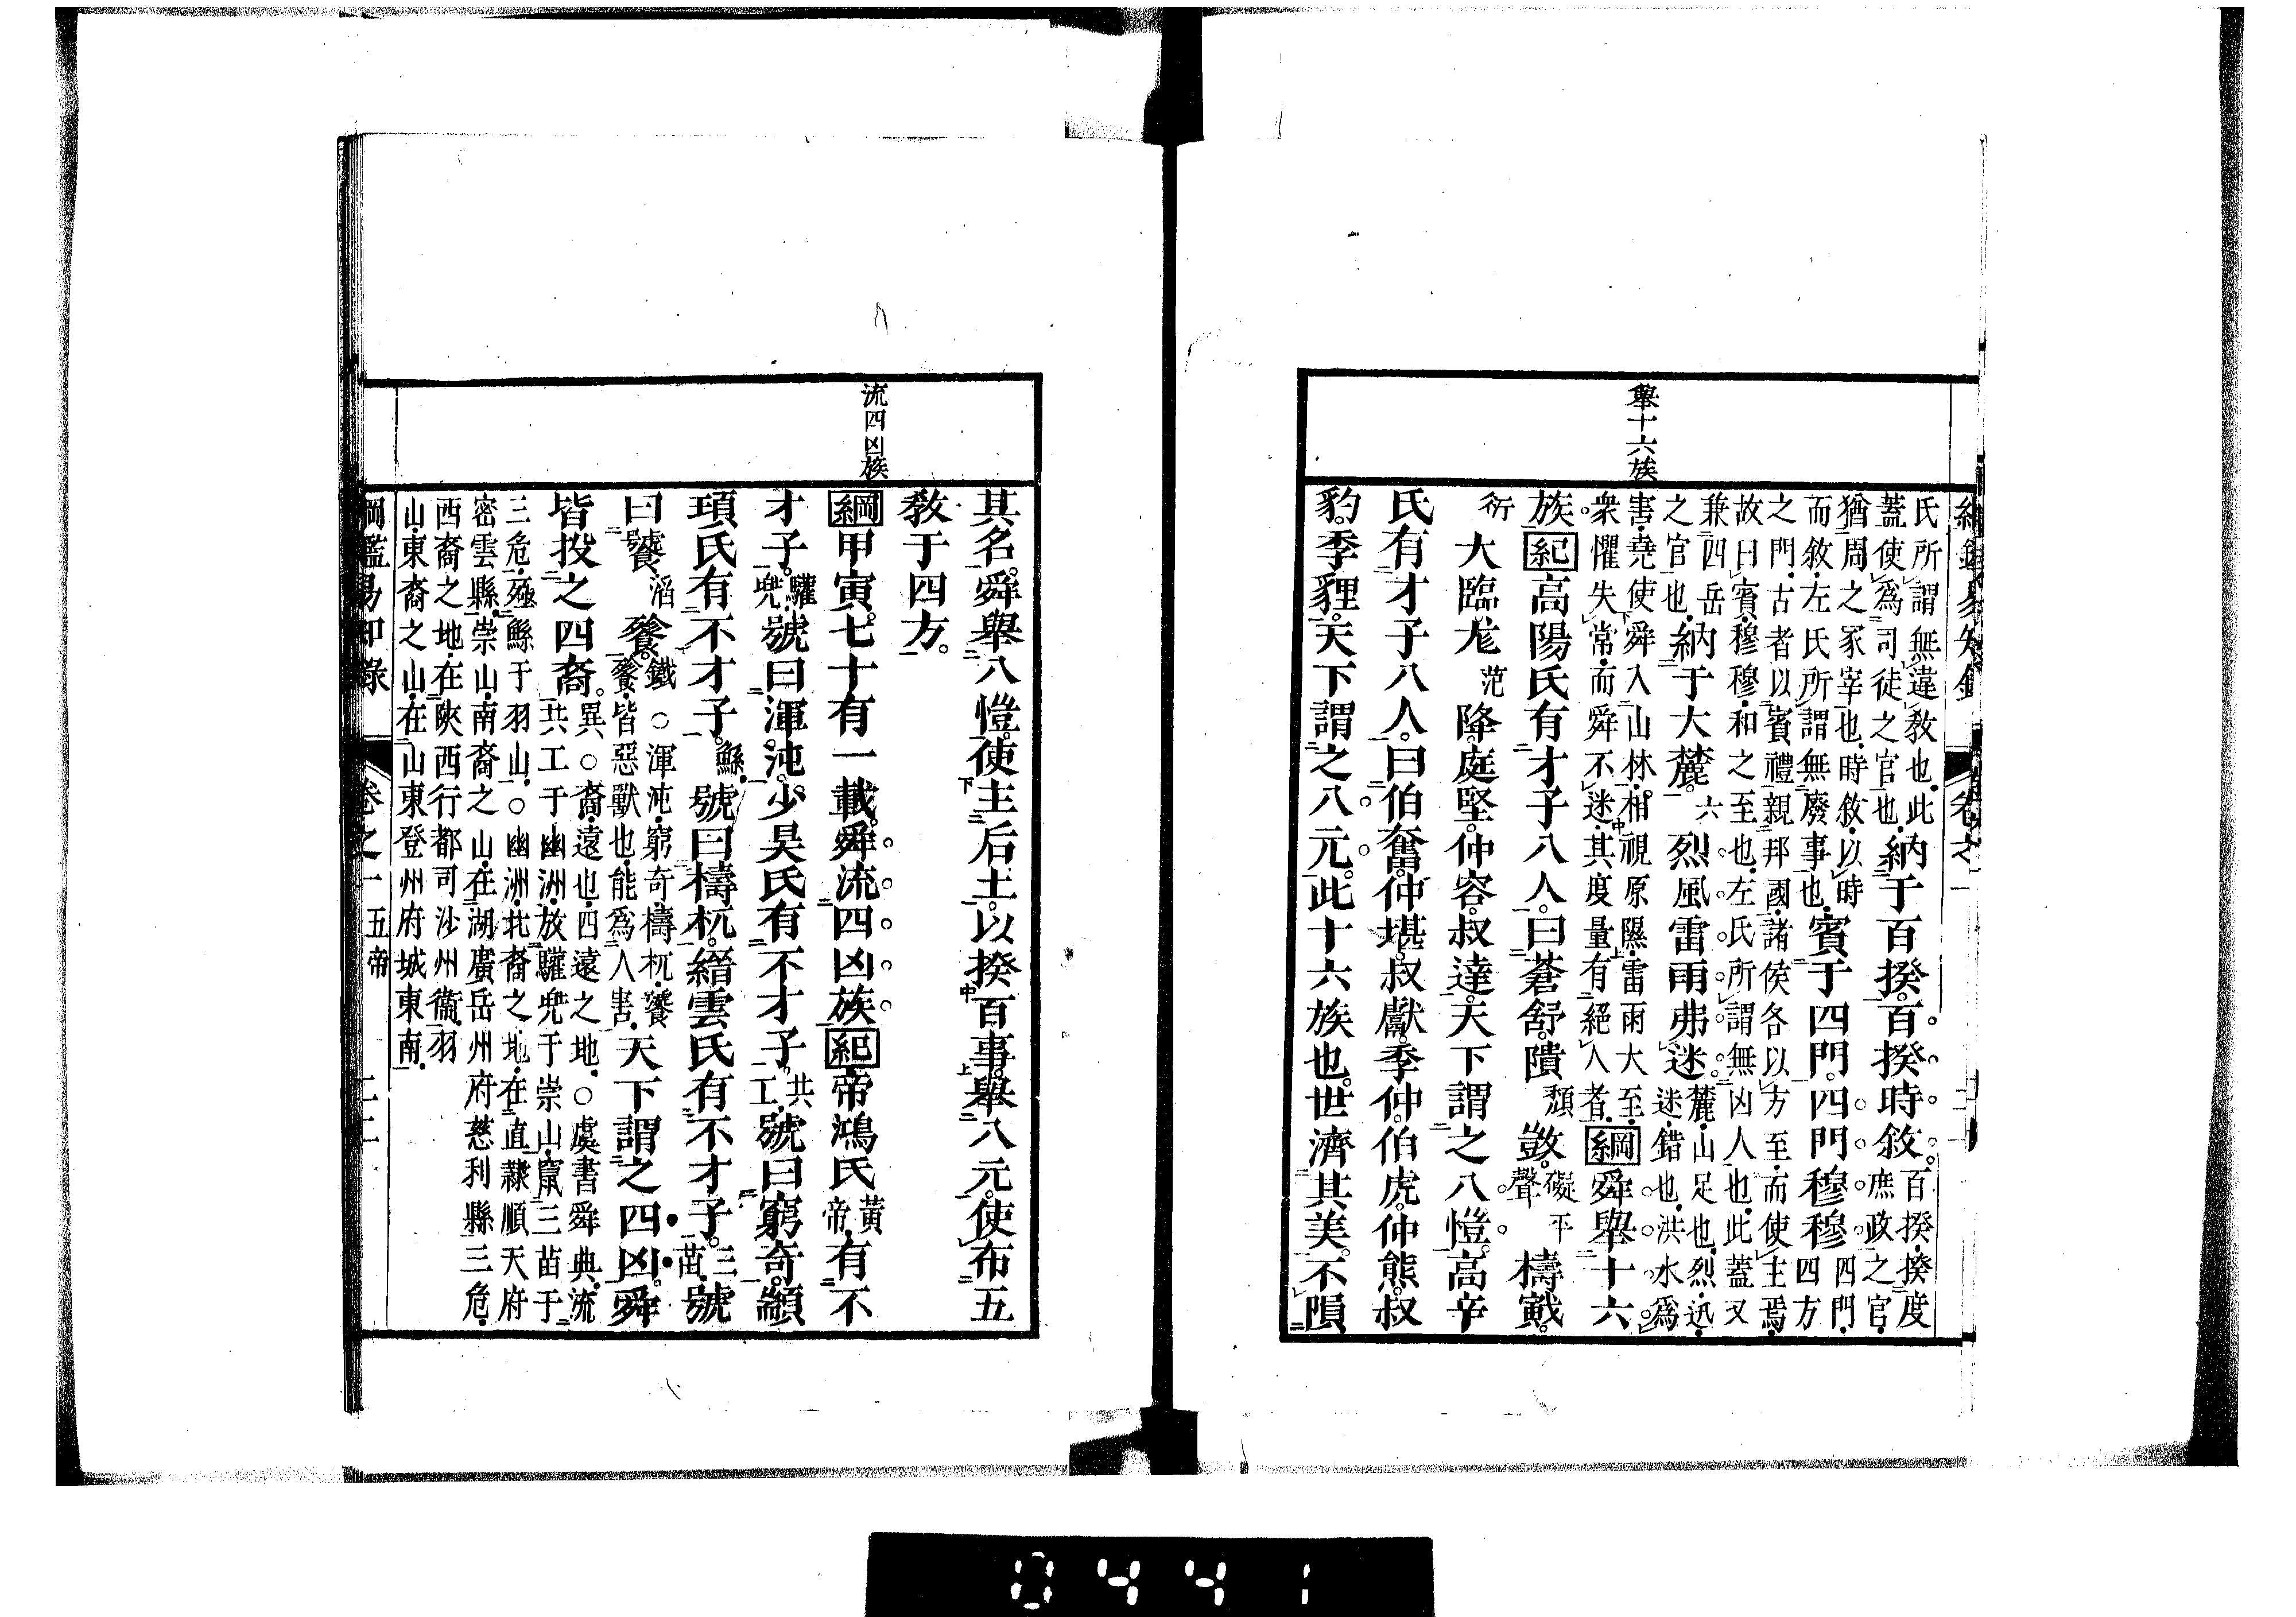 舉十六族
氏所謂無違教也。此
蓋使爲司徒之官也。
納于百揆。百揆時敘。
百揆。揆度
庶政之官。
猶周之冢宰也。時敘。以時
而敘。左氏所謂無廢事也。
賓于四門。四門穆穆
四門。
四方
之門。古者以賓禮親邦國。諸侯各以方至。而使主焉。
故曰賓。穆穆。和之至也。左氏所謂無凶人也。此蓋又
兼四岳
之官也。
納于大麓。六烈風雷雨弗迷。
麓。山足也。烈。迅。
迷。錯也。洪水爲
害。堯使舜入山林。相視原隰。雷雨大至。
衆懼失常。而舜不迷。其度量有絕人者。
綱舜舉十六
族。紀高陽氏有才子八人。曰蒼舒。隤頹敳。礙平聲檮戭。
衍大臨。尨范降。庭堅。仲容。叔達。天下謂之八愷。高辛
氏有才子八人。曰伯奮。仲堪。叔獻。季仲。伯虎。仲熊。叔
豹。季貍。天下謂之八元。此十六族也。世濟其美。不隕
流四凶族
其名。舜舉八愷。使主后土。以揆百事。舉八元。使布五
教于四方。
綱甲寅。七十有一載。舜流四凶族。紀帝鴻氏黃帝。有不
才子。驩兜。號曰渾沌。少昊氏有不才子。共工。號曰窮奇。顓
頊氏有不才子。鯀。號曰檮杌。縉雲氏有不才子。三苗。號
曰饕滔餮。
鐵○渾沌。窮奇。檮杌。饕
餮。皆惡獸也。能爲人害。
天下謂之四凶。舜
皆投之四裔。
異。○裔。遠也。四遠之地。○虞書舜典。流
共工于幽洲。放驩兜于崇山。竄三苗于
三危。殛鯀于羽山。○幽洲。北裔之地。在直隸順天府
密雲縣。崇山。南裔之山。在湖廣岳州府慈利縣。三危。
西裔之地。在陝西行都司沙州衞。羽
山。東裔之山。在山東登州府城東南。
綱鑑易知錄 卷之一 五帝 二二